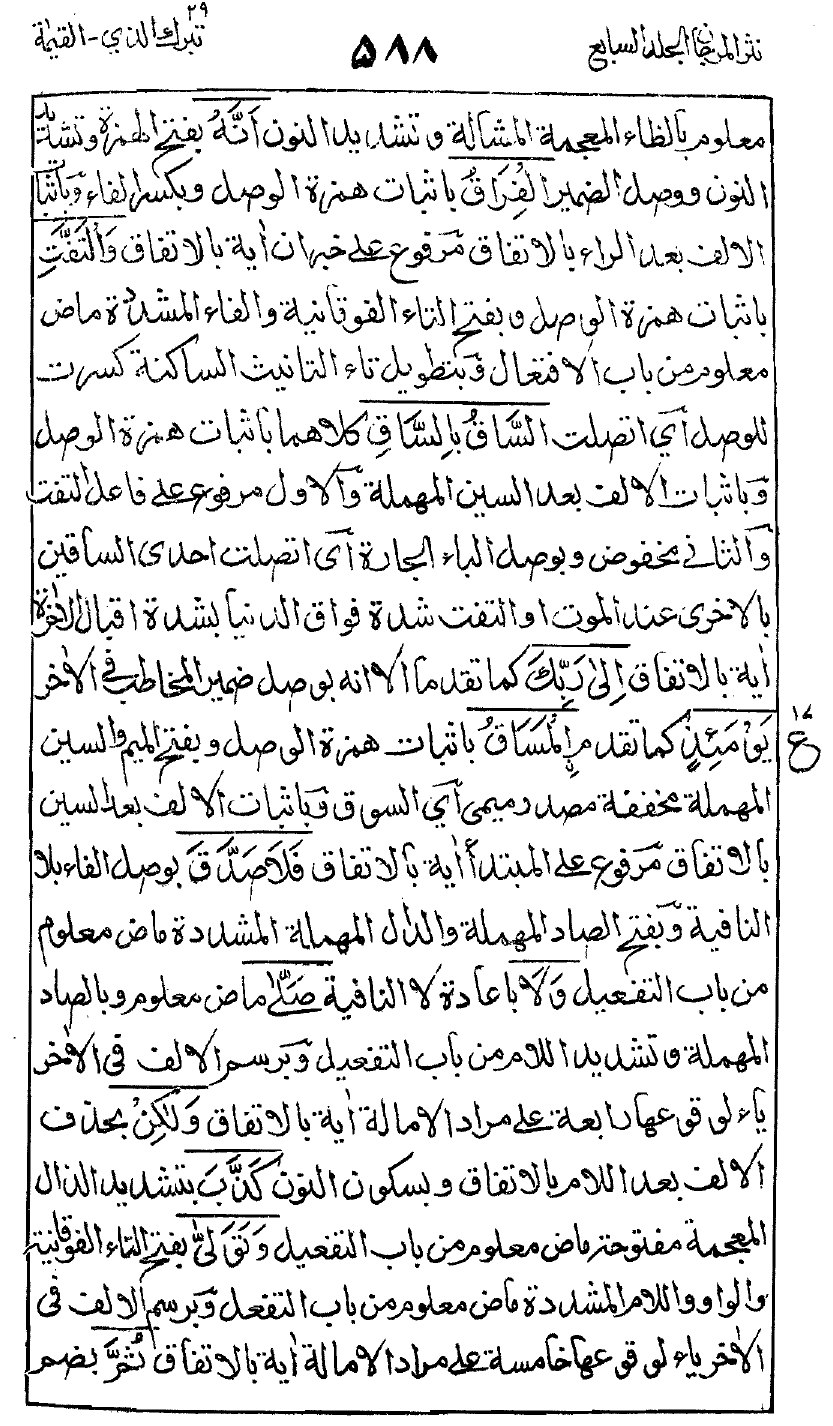 نثر المرجان الجلد السابع
٥٨٨
تبرك الذي - القيمة
٢٩
معلوم بالظاء المعجمة المشالة وتشديد النون أَنَّهُ بفتح الهمزة وتشديد
النون ووصل الضمير الفِرَاقُ باثبات همزة الوصل وبكسر الفاء وباثبات
الالف بعد الراء بالاتفاق مرفوع على خبر ان اٰية بالاتفاق وَالْتَفَّتِ
باثبات همزة الوصل وبفتح التاء الفوقانية والفاء المشددة ماض
معلوم من باب الافتعال وبتطويل تاء التانيث الساكنة كسرت
للوصل أي اتصلت السَّاقُ بِالسَّاقِ كلاهما باثبات همزة الوصل
وباثبات الالف بعد السين المهملة والاول مرفوع على فاعل التفت
والثاني مخفوض وبوصل الباء الجارة أي اتصلت احدى الساقين
بالاخرى عند الموت او التفت شدة فراق الدنيا بشدة اقبال الاٰخرة
اٰية بالاتفاق اِلىٰ رَبِّكَ كما تقدم الا انه بوصل ضمير المخاطب في الاٰخر
يَوْمَئِذٍ كما تقدم اِلْمَسَاقُ باثبات همزة الوصل وبفتح الميم والسين
١٧
ع
المهملة مخففة مصدر ميمي أي السوق وباثبات الالف بعد السين
بالاتفاق مرفوع على المبتدأ اٰية بالاتفاق فَلَا صَدَّقَ بوصل الفاء بلا
النافية وبفتح الصاد المهملة والدال المهملة المشددة ماض معلوم
من باب التفعيل وَلَا باعادة لا النافية صَلّٰى ماض معلوم وبالصاد
المهملة وتشديد اللام من باب التفعيل وبرسم الالف في الاٰخر
ياء لوقوعها رابعة على مراد الامالة اٰية بالاتفاق وَلٰكِنْ بحذف
الالف بعد اللام بالاتفاق وبسكون النون كَذَّبَ بتشديد الذال
المعجمة مفتوحة ماض معلوم من باب التفعيل وَتَوَلّٰى بفتح التاء الفوقانية
والواو واللام المشددة ماض معلوم من باب التفعل وبرسم الالف في
الاٰخر ياء لوقوعها خامسة على مراد الامالة اٰية بالاتفاق ثُمَّ بضم